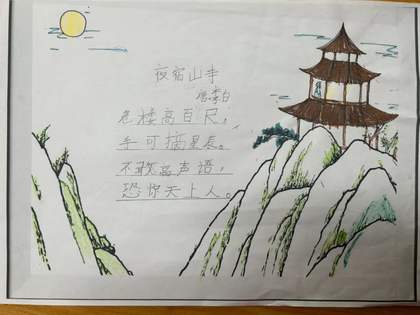 夜宿山寺
唐李白
危楼高百尺，
手可摘星辰。
不敢高声语，
恐惊天上人。